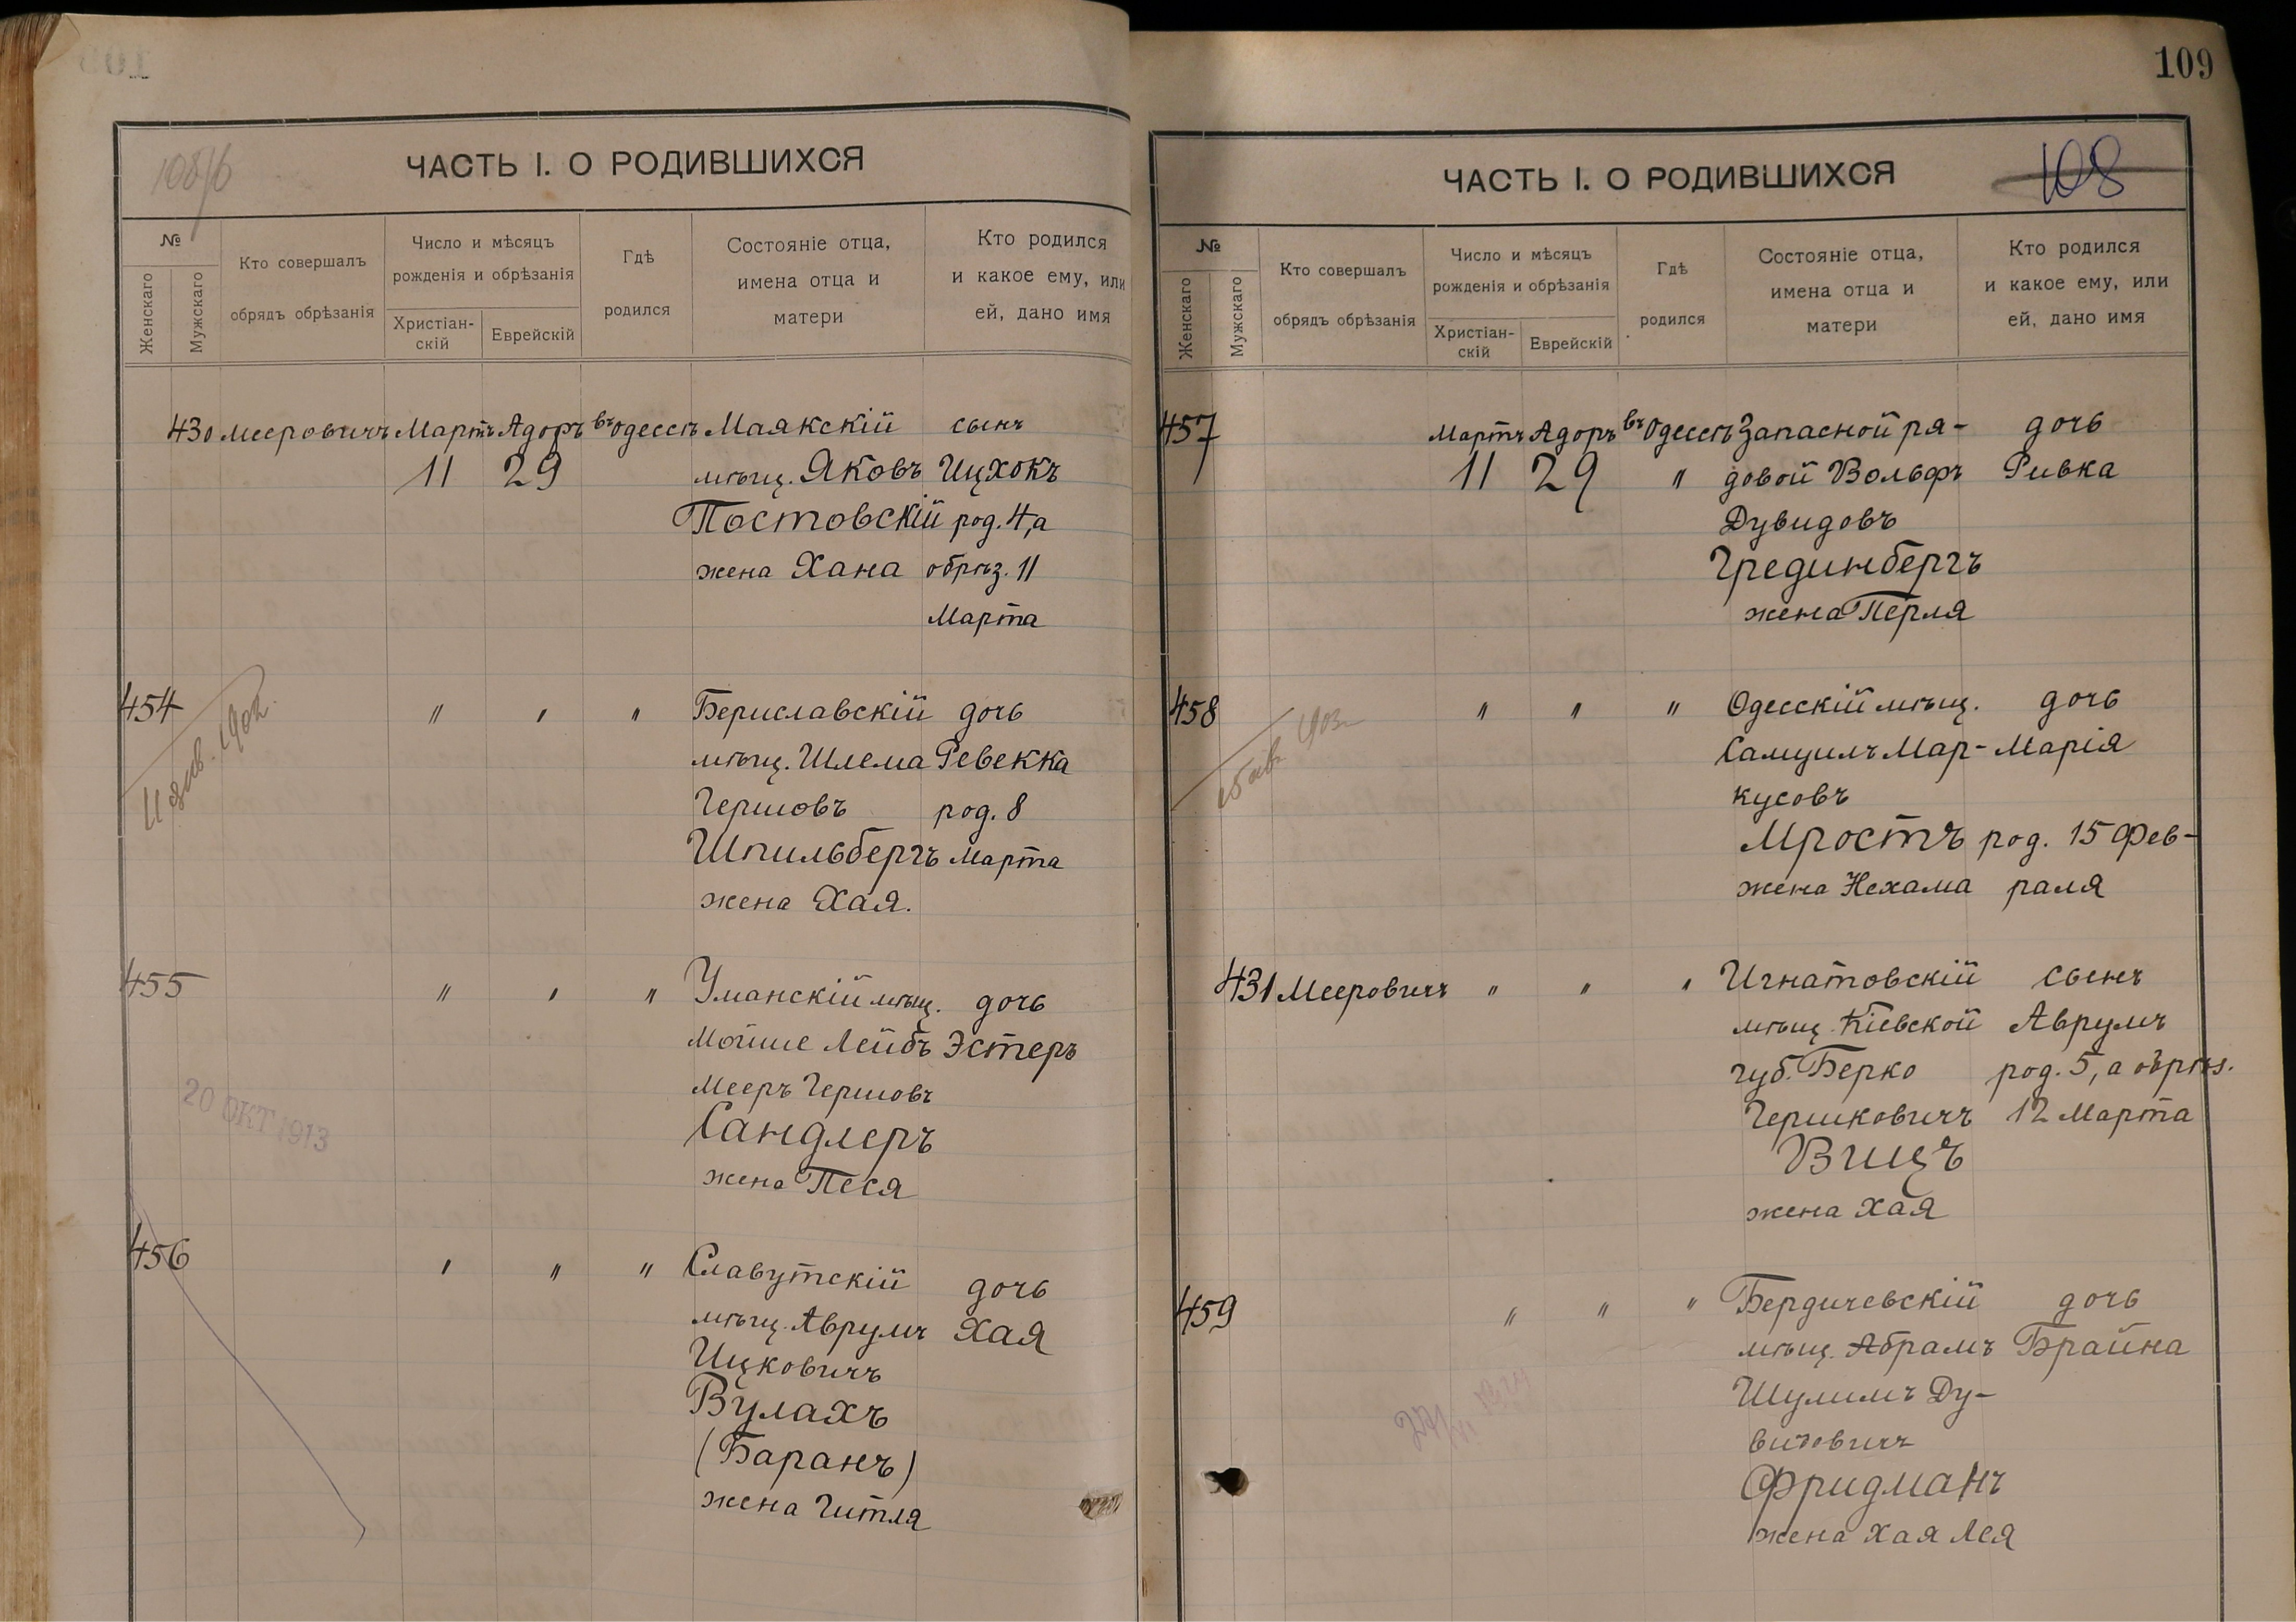 ЧАСТЬ I. О РОДИВШИХСЯ
№
Женскаго
Мужскаго
Кто совершалъ
обрядъ обрѣзанія
Число и мѣсяцъ
рожденія и обрѣзанія
Христіан-
скій
Еврейскій
Гдѣ
родился
Состояніе отца,
имена отца и
матери
Кто родился
и какое ему, или
ей, дано имя
430 Мееровичъ Мартъ Адоръ въ Одессѣ Маякскій сынъ
11 29 мѣщ. Яковъ Ицхокъ
Постовскій род. 4, а
жена Хана обрѣз. 11
Марта
454 " " " Бериславскій дочь
мѣщ. Шлема Ревекка
Гершовъ род. 8
Шпильбергъ Марта
жена Хая.
455 " " " Уманскій мѣщ. дочь
Мойше Лейбъ Эстеръ
Мееръ Гершовъ
Сандлеръ
жена Песя
20 ОКТ 1913
456 " " " Славутскій дочь
мѣщ. Аврумъ Хая
Ицковичъ
Вулахъ
(Баранъ)
жена Гитля
109
ЧАСТЬ I. О РОДИВШИХСЯ
108
№
Женскаго
Мужскаго
Кто совершалъ
обрядъ обрѣзанія
Число и мѣсяцъ
рожденія и обрѣзанія
Христіан-
скій
Еврейскій
Гдѣ
родился
Состояніе отца,
имена отца и
матери
Кто родился
и какое ему, или
ей, дано имя
457 Мартъ Адоръ въ Одессѣ Запасной ря- дочь
11 29 " довой Вольфъ Ривка
Дувидовъ
Грединбергъ
жена Перля
458 " " " Одесскій мѣщ. дочь
Самуилъ Мар- Марія
кусовъ
Мростъ род. 15 Фев-
жена Нехама раля
431 Мееровичъ " " " Игнатовскій сынъ
мѣщ. Кіевской Аврумъ
губ. Берко род. 5, а обрѣз.
Гершковичъ 12 Марта
Вицъ
жена Хая
459 " " " Бердичевскій дочь
мѣщ. Абрамъ Брайна
Шулимъ Ду-
видовичъ
Фридманъ
жена Хая Лея